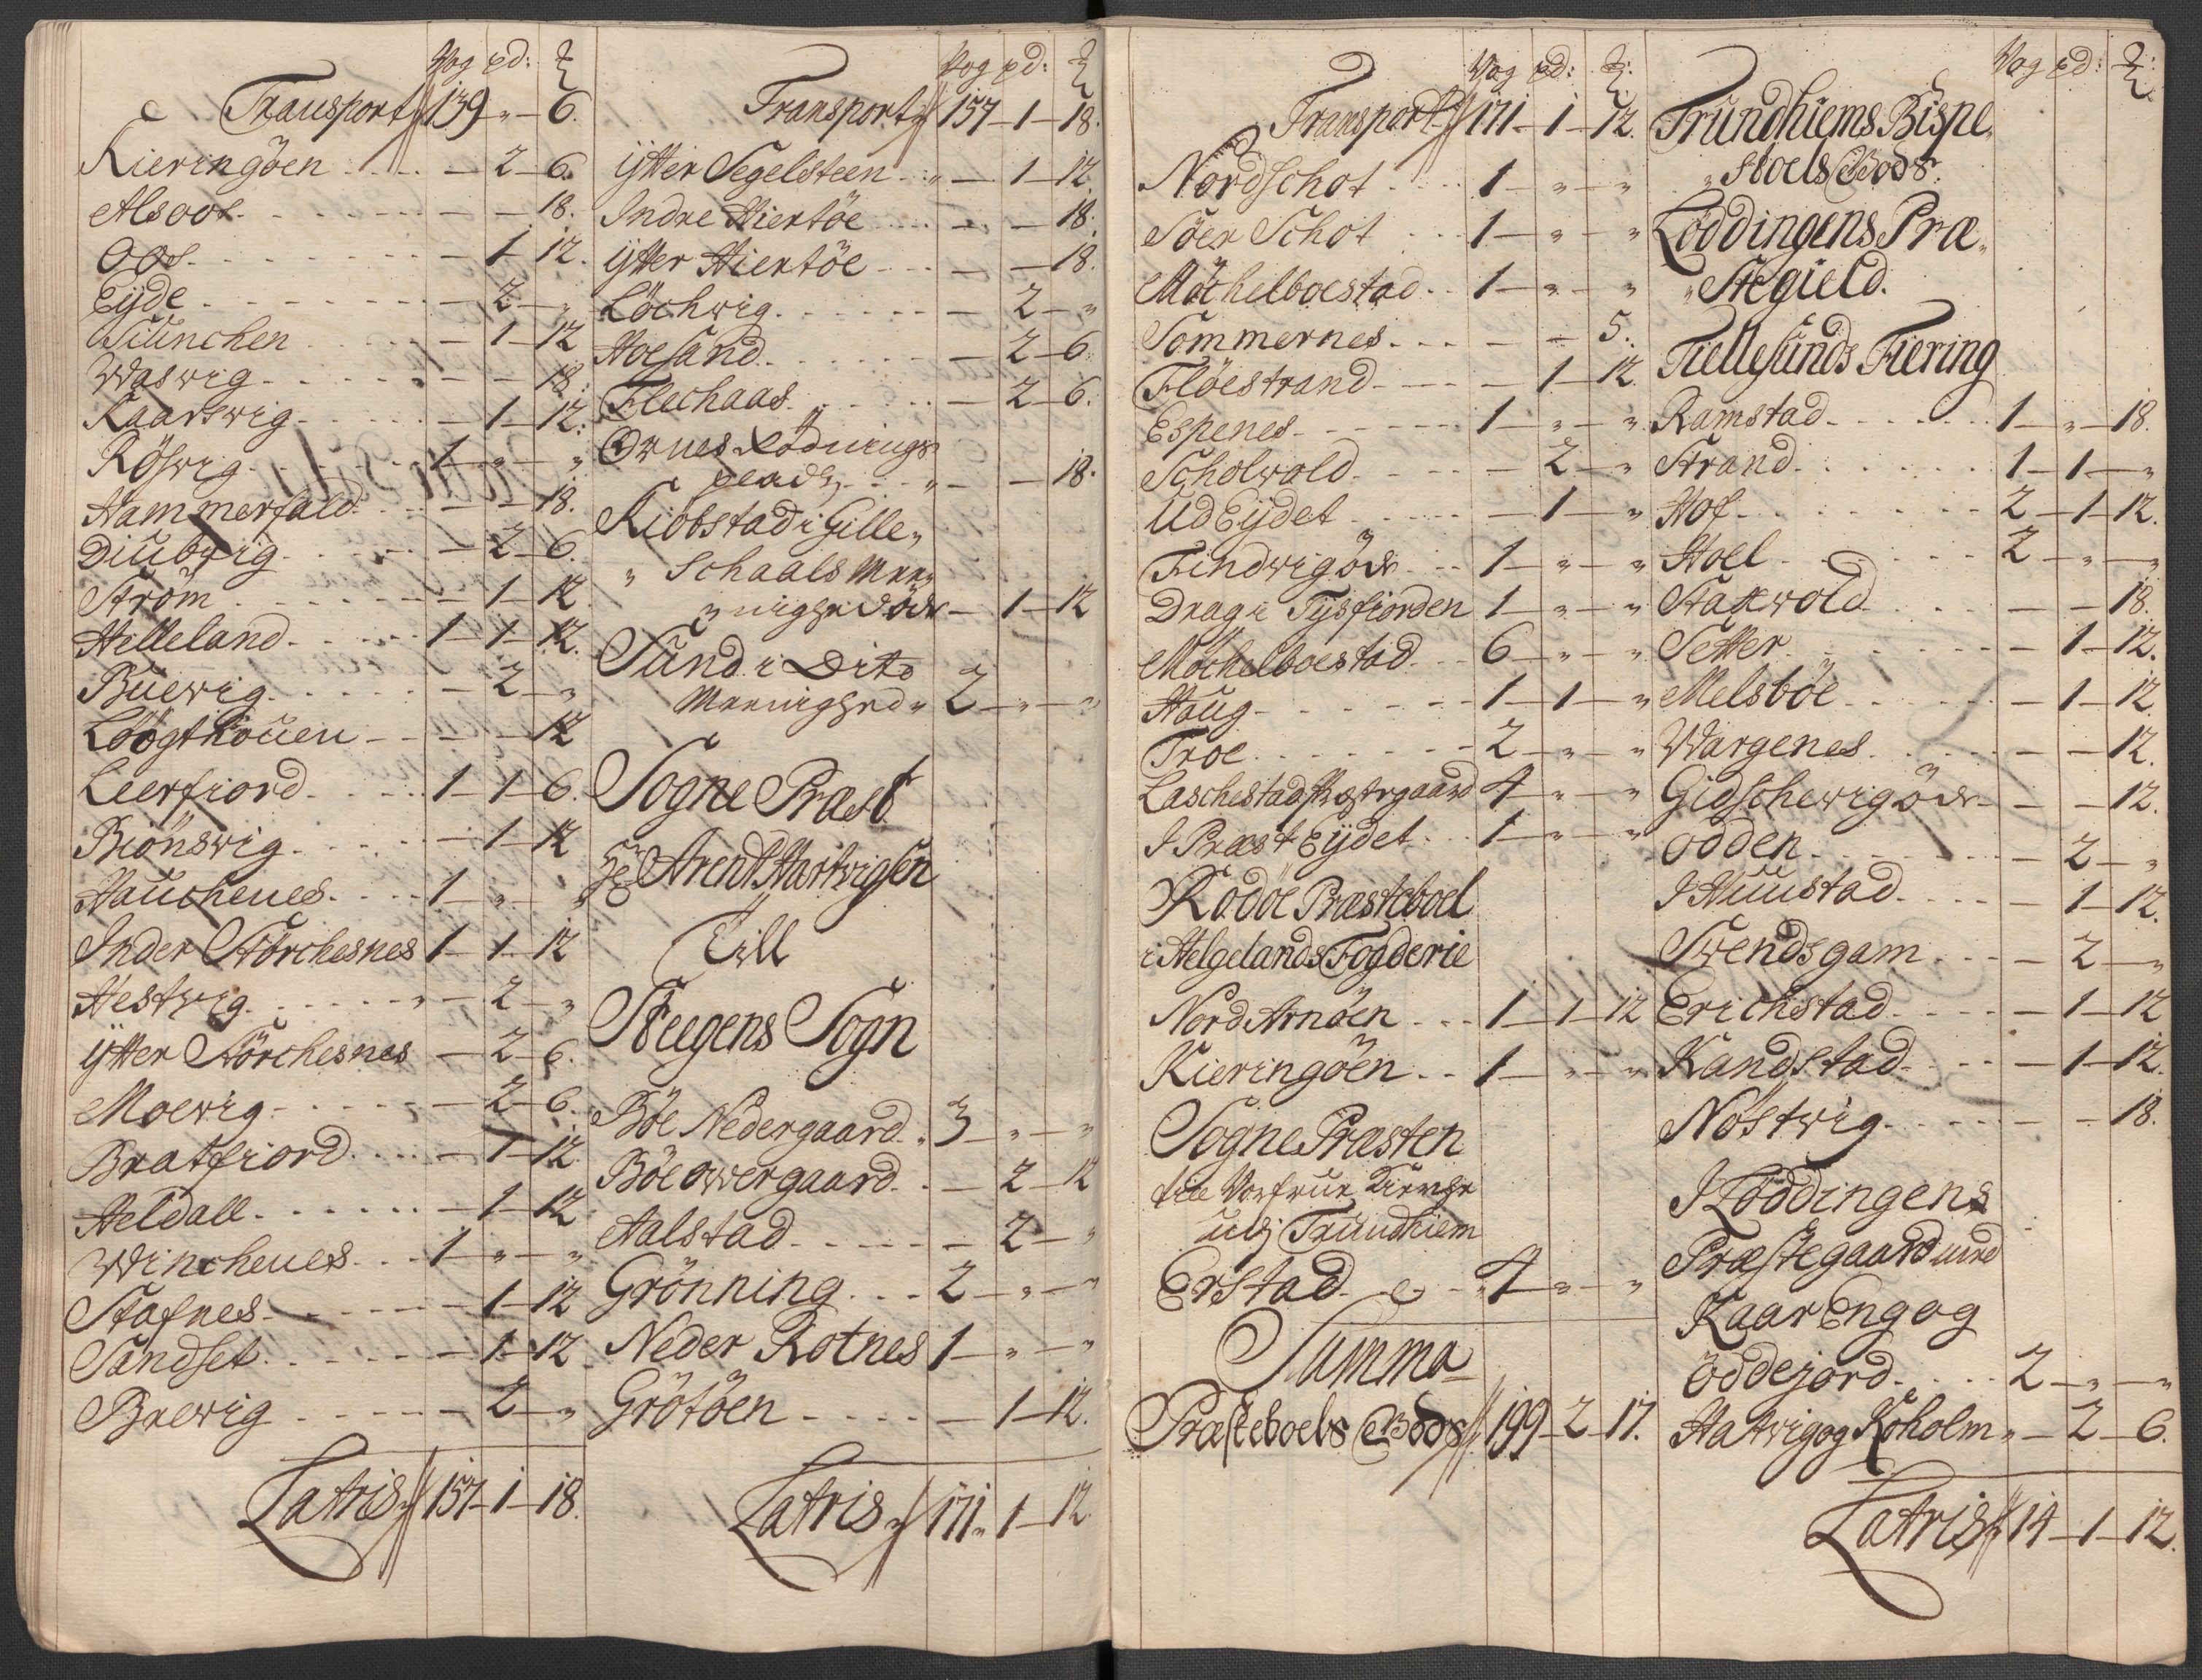 Wog pd: ℔
Transport 139 - " - 6.
Kieringöen - 2 - 6.
Alsoos - - 18.
Oos - 1 - 12.
Eyde - 2 - "
Siünchen - 1 - 12
Waswig - - 18.
Kaarswig - 1 - 12.
Röswig 1 - " - "
Hammerfald - - 18.
Diübwig - 2 - 6.
Ström - 1 - 12.
Helleland 1 - 1 - 12.
Büewig - 2 - "
Löögthouen - - 12
Leerfiord 1 - 1 - 6.
Biönswig - 1 - 12
Hauchenes 1 - " - "
Inder Störchesnes 1 - 1 - 12
Hestwig - 2 - "
ÿtter Störchesnes - 2 - 6.
Moewig - 2 - 6.
Bratfiord - 1 - 12
Heldall - 1 - 12
Winchenes 1 - " - "
Stafnes - 1 - 12
Sandset - 1 - 12
Brewig - 2 - "
Latris 157 - 1 - 18.
Wog pd: ℔
Transport 157 - 1 - 18.
ÿtter Segelsteen - 1 - 12.
Indre Hiertöe - - 18.
ÿtter Hiertöe - - 18.
Löchwig - 2 - "
Hoesand - 2 - 6.
Flechaas - 2 - 6.
Ornes Rödnings
pladz - - 18.
Kiobstad i Gille"
" Schaals Men"
" nighe Söds - 1 - 12
Sund i Dito
Menighed 2 - " - "
Sogne Præst
Hr Arent Hartvigsen
Till
Steegens Sogn
Böe Nedergaard 3 - " - "
Böe owergaard - 2 - 12
Aalstad - 2 - "
Grönning 2 - " - "
Neder Rotnes 1 - " - "
Grötöen - 1 - 12.
Latris 171 - 1 - 12.
Wog pd: ℔
Transport 171 - 1 - 12.
Nordschot 1 - " - "
Söer Schot 1 - " - "
Möchelboestad 1 - " - "
Sommernes - - 5.
Flöestrand - 1 - 12
Espenes 1 - " - "
Scholwold - 2 - "
Ud Eydet - 1 - "
Findwig öds 1 - " - "
Drag i Tysfiorden 1 - " - "
Möchelboestad 6 - " - "
Haug 1 - 1 - "
Troe 2 - " - "
Laschestad Præstegaard 4 - " - "
I Præst Eydet 1 - " - "
Rödöe Præsteboel
i Helgelands Fogderie
Nord Arnöen 1 - 1 - 12
Kieringöen 1 - " - "
Sogne Præsten
till Vorfrue Kirche
udj Trundhiem
Erstad 4 - " - "
Summa
Præsteboels Gods 199 - 2 - 17.
Wog pd: ℔
Trundhiems Bispe"
" Stoels Gods.
Löddingens Præ"
" Stegield.
Tiellesunds Fiering
Ramstad 1 - " - 18.
Strand 1 - 1 - "
Hof 2 - 1 - 12.
Hoel 2 - " - "
Staxwold - - 18.
Setter - 1 - 12.
Melsböe - 1 - 12.
Wargenes - - 12.
Gidschewig öds - - 12.
Odden - 2 - "
I Huustad - 1 - 12.
Swendsgam - 2 - "
Erichstad - 1 - 12
Kandstad - 1 - 12.
Nöstwig - - 18.
I Löddingens
Præstegaard med
Kaar Eng og
öddejord 2 - " - "
Hatwig og Koholm - 2 - 6.
Latris 14 - 1 - 12.